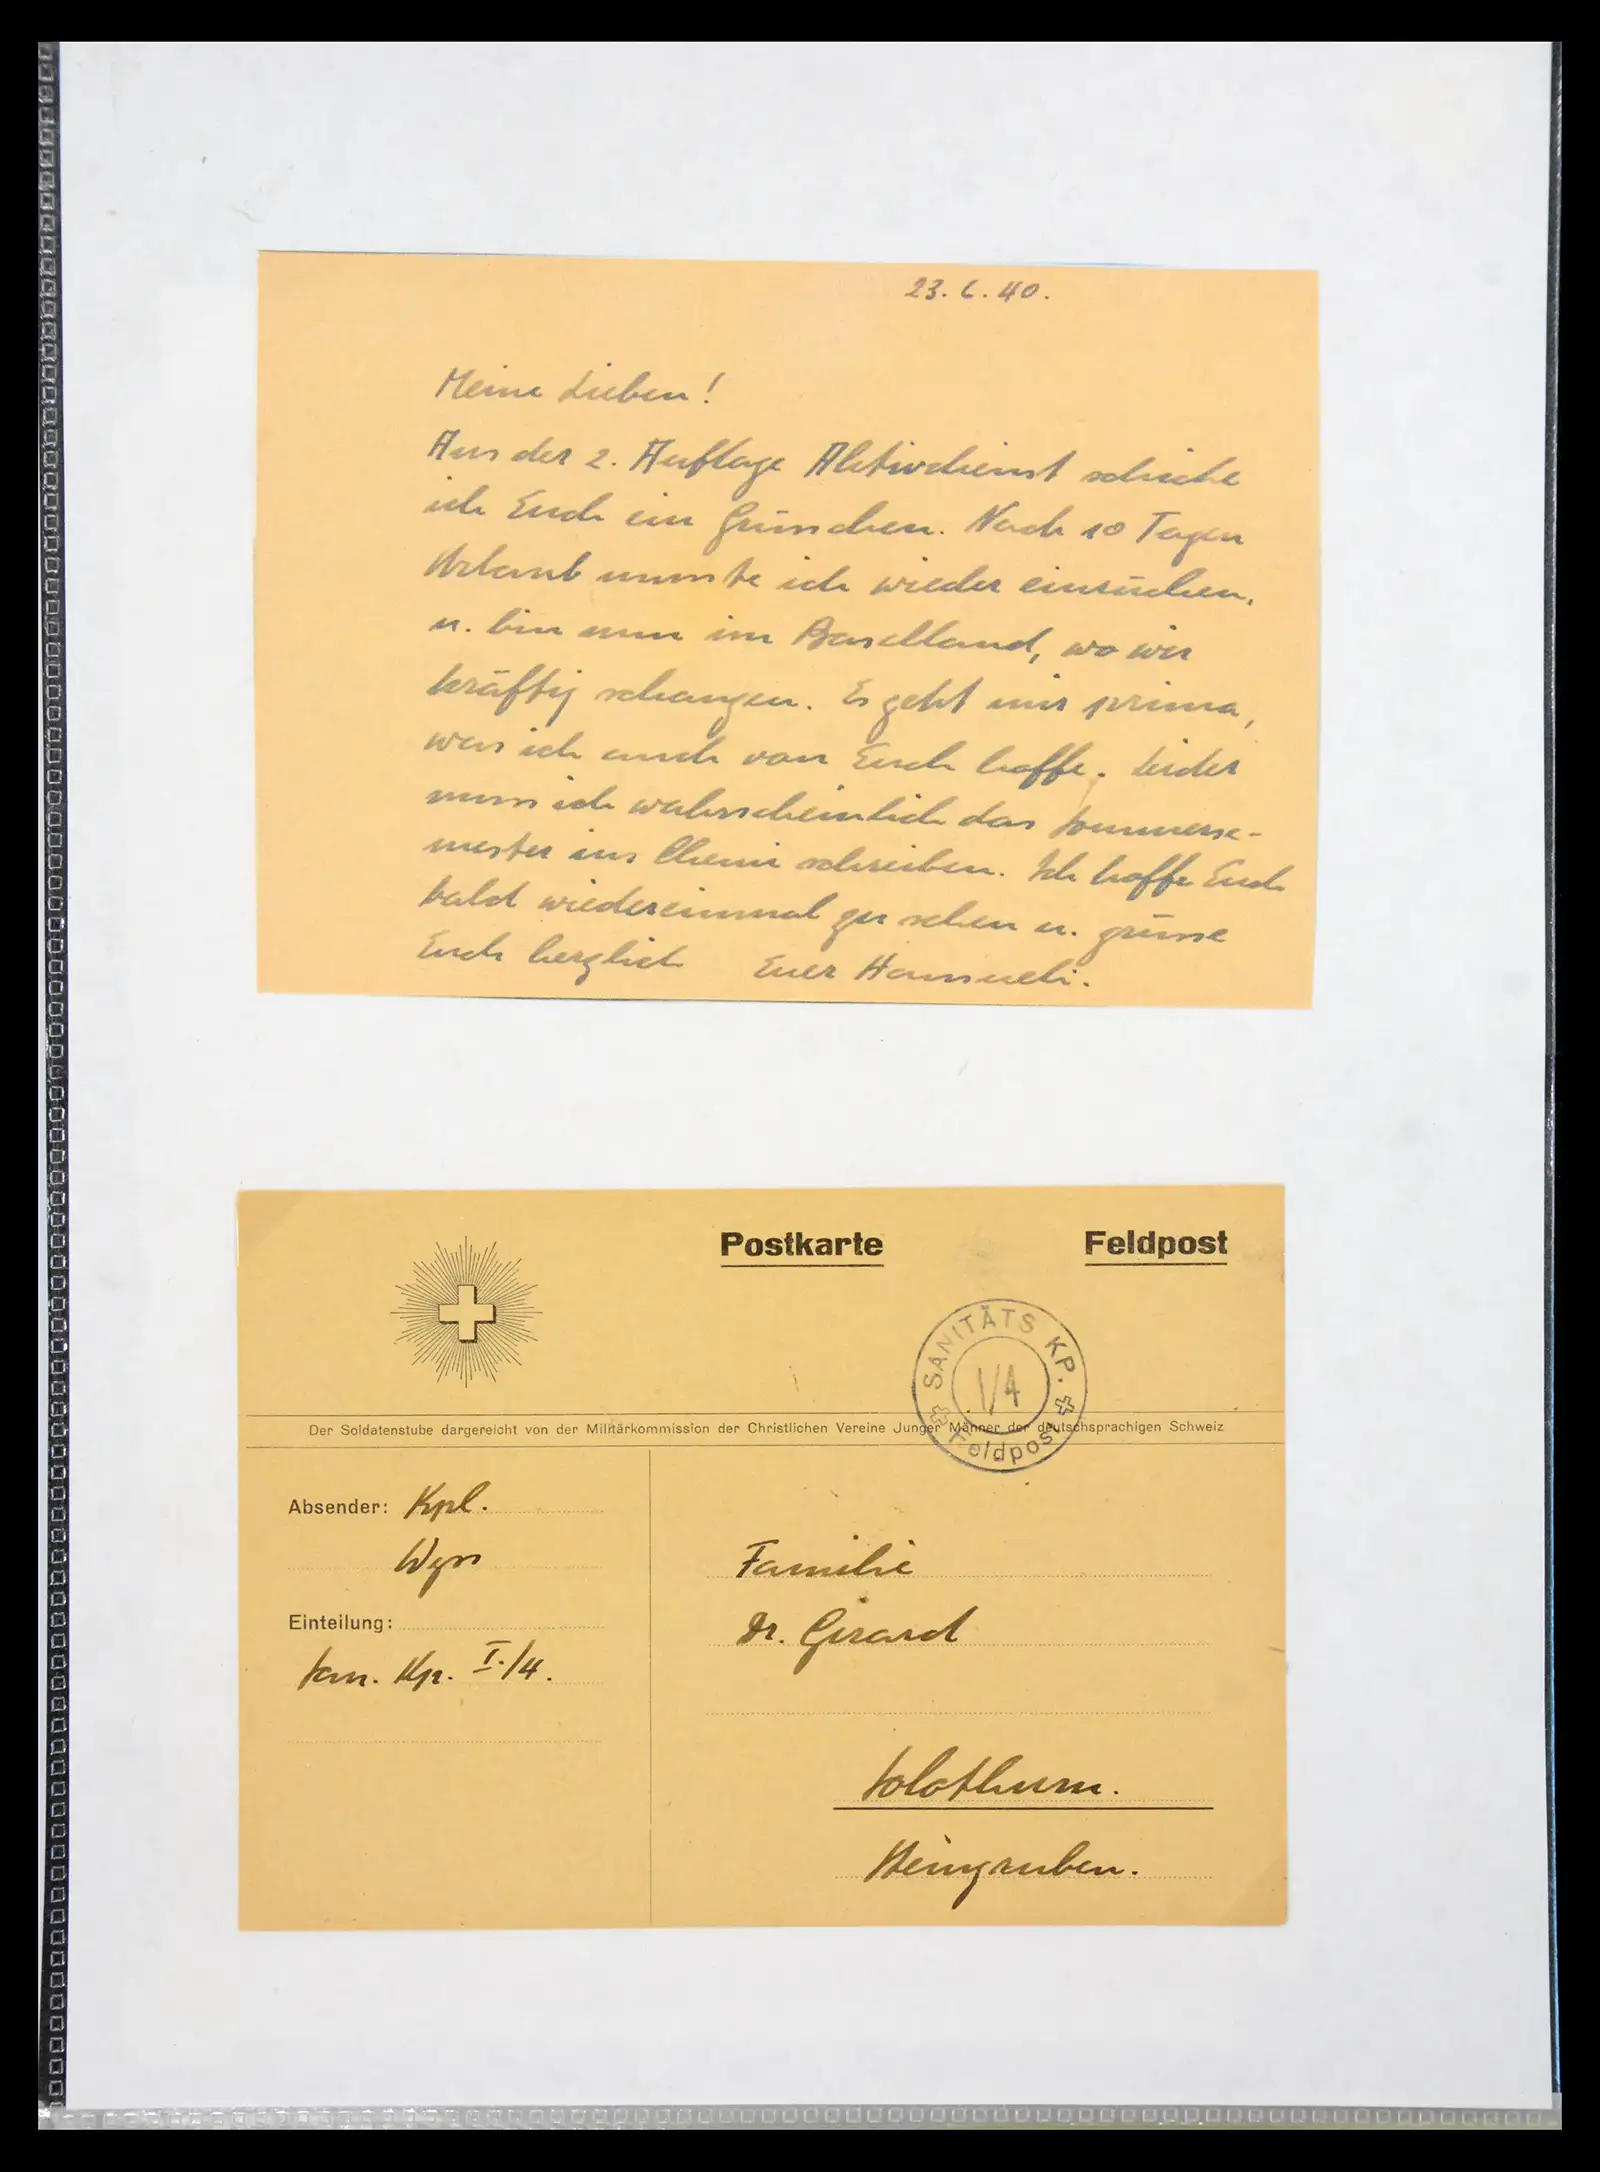 23.6.40.
Meine Lieben!
Aus der 2. Auflage Aktivdienst schicke
ich Euch ein Grüsschen. Nach 10 Tagen
Urlaub musste ich wieder einrücken,
u. bin nun im Baselland, wo wir
kräftig schanzen. Es geht mir prima,
was ich auch von Euch hoffe. Leider
muss ich wahrscheinlich das Sommerse-
mester ins Chemi schreiben. Ich hoffe Euch
bald wiedereinmal zu sehen u. grüsse
Euch herzlich Euer Hansueli.
Postkarte Feldpost
SANITÄTS KP.
I/4
Feldpost
Der Soldatenstube dargereicht von der Militärkommission der Christlichen Vereine Junger Männer der deutschsprachigen Schweiz
Absender: Kpl.
Wyss
Einteilung:
San. Kp. I./4.
Familie
Dr. Girard
Solothurn.
Steingruben.